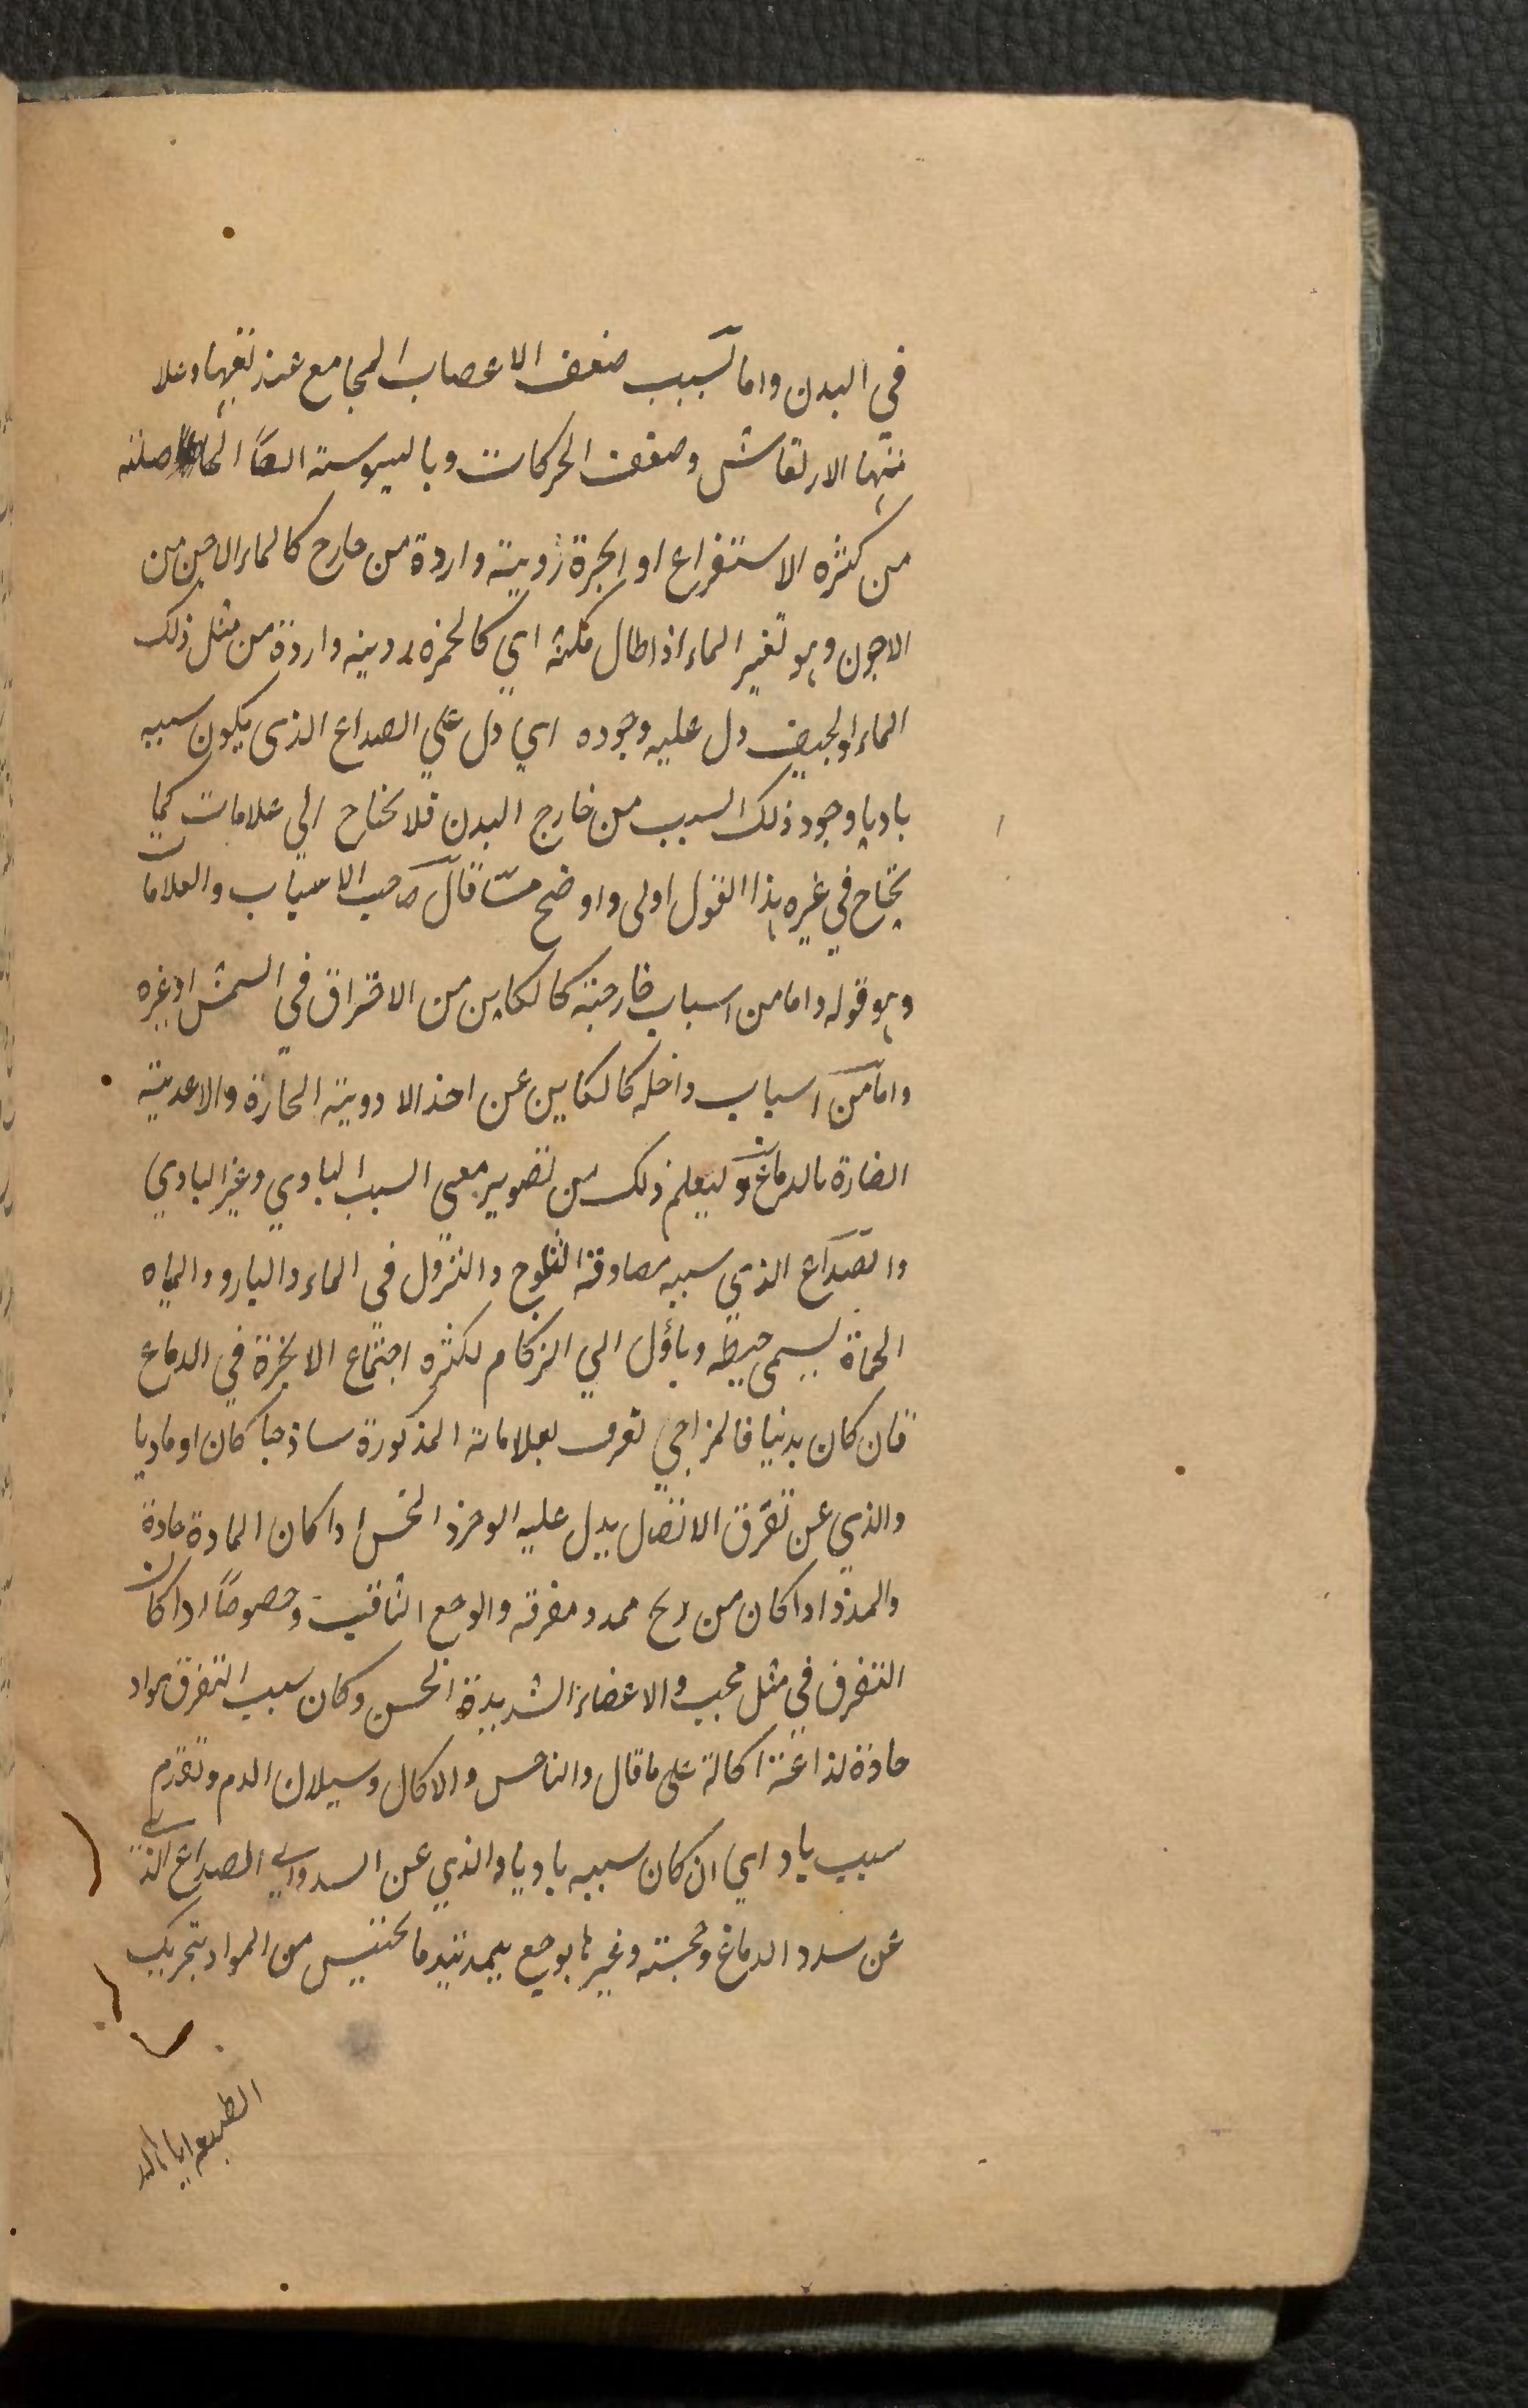 في البدن واما لسبب ضعف الاعصاب المجامع عند تعبها وعلا
متها الارتعاش وضعف الحركات وباليبوسة ايضا الحاصلة
من كثرة الاستفراغ او ابخرة رديئة واردة من خارج كالماء الاجن من
الاجون وهو تغير الماء اذا طال مكثه اي كالخمرة رديئة واردة من مثل ذلك
الماء او الجيف دل عليه وجوده اي دل على الصداع الذي يكون سببه
باديا وجود ذلك السبب من خارج البدن فلا يحتاج الي علامات كما
يحتاج في غيره هذا القول اولى واوضح مما قال صاحب الاسباب والعلامات
وهو قوله واما من اسباب خارجية كالكاين من الاحتراق في الشمس او غيره
واما من اسباب داخله كالكاين عن اخذ الادوية الحارة والاغدية
الضارة بالدماغ وليعلم ذلك من تصوير معنى السبب البادي وغير البادي
والصداع الذي سببه مصادفة الثلوج والنزول في الماء والبارد والمياه
الحماة يسمى خبطه وياؤل الي الزكام لكثره اجتماع الابخرة في الدماغ
فان كان بدنيا فالمزاجي تعرف بعلاماته المذكورة ساذجا كان او ماديا
والذي عن تفرق الاتصال يدل عليه الوخز والنخس اذا كان المادة حادة
والتمدد اذا كان من ريح ممدد مفرقه والوجع الثاقب وخصوصا اذا كان
التفرق في مثل حجب والاعضاء الشديدة الحس وكان سبب التفرق مواد
حادة لذاعة اكالة على ما قال والناخس والاكال وسيلان الدم وتقدم
سبب باد اي ان كان سببه باديا والذي عن السدد اي الصداع الذي
عن سدد الدماغ وحجبته وغيرها بوجع بتمديد ما يحتبس من المواد بتحريك
الطبيعه اياها